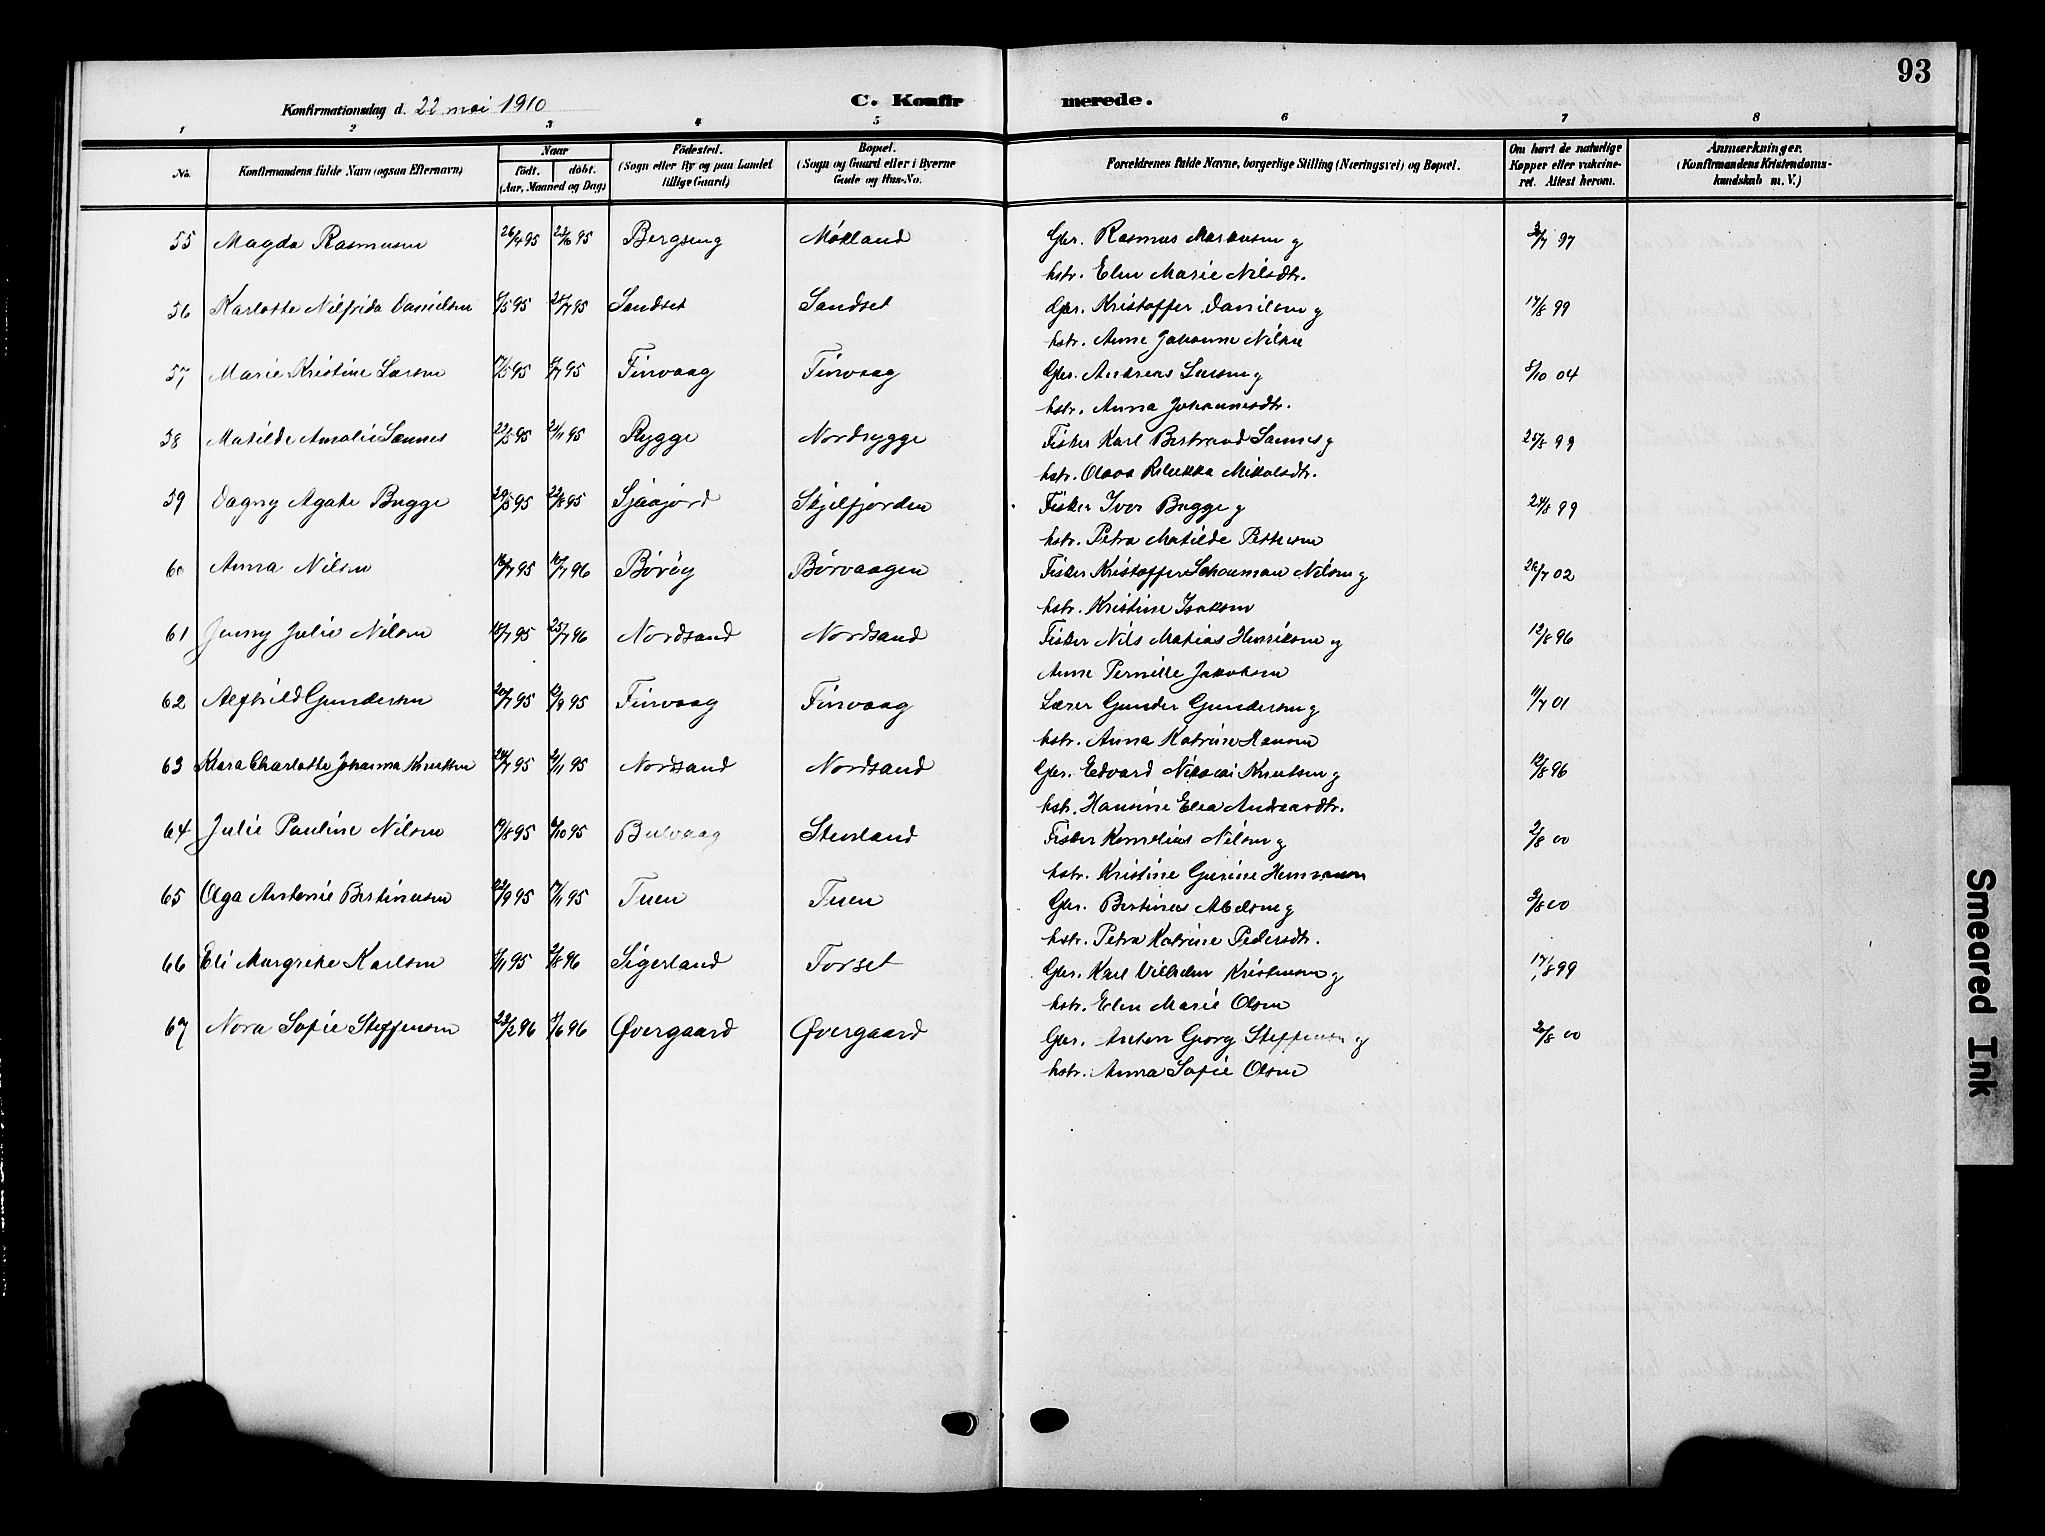 93
Konfirmationsdag d. 22 mai 1910 C. Konfirmerede.
1 2 3 4 5 6 7 8
No. Konfirmandens fulde Navn (ogsaa Efternavn) Naar født. døbt. (Aar, Maaned og Dag) Fødested. (Sogn eller By og paa Landet tillige Gaard) Bopæl. (Sogn og Gaard eller i Byerne Gade og Hus-No. Forældrenes fulde Navne, borgerlige Stilling (Næringsvei) og Bopæl. Om havt de naturlige Kopper eller vakcineret. Attest herom. Anmærkninger. (Konfirmandens Kristendomskundskab m. V.)
55 Magda Rasmusen 26/4 95 Bergseng Mokland Gbr. Rasmus Markusen g 97
hstr. Elen Marie Nilsdtr.
56 Karlotte Nilfrida Danielsen 95 95 Sandset Sandset Gbr. Kristoffer Danilsen g 17/8 99
hstr. Anne Johanne Nilsen
57 Marie Kristine Larsen 95 95 Finvaag Finvaag Gbr. Andreas Larsen g 8/10 04
hstr. Anna Johannesdtr.
58 Matilde Amalie Sannes 22/5 95 95 Rygge Nordrygge Fisker Karl Bertrand Sannes g 25/8 99
hstr. Olava Rebekka Mikalsdtr.
59 Dagny Agate Bugge 29/5 95 22/8 95 Sjaajord Skjelfjorden Fisker Ivor Bugge g 24/8 99
hstr. Petra Matilde Pettersen
60 Anna Nilsen 95 96 Børøy Børvaagen Fisker Kristoffer Schouman Nilsen g 26/7 02
hstr. Kristine Isaksen
61 Jenny Julie Nilsen 95 25/7 96 Nordsand Nordsand Fisker Nils Matias Henriksen g 12/8 96
Anne Pernille Jakobsen
62 Alfhild Gundersen 20/7 95 95 Finvaag Finvaag Lærer Gunder Gundersen g 11/7 01
hstr. Anna Katrine Hansen
63 Klara Charlotte Johanna Knutsen 24/7 95 95 Nordsand Nordsand Gbr. Edvard Nikolai Knutsen g 12/8 96
hstr. Hansine Elea Andreasdtr.
64 Julie Pauline Nilsen 19/8 95 95 Bulvaag Stenland Fisker Kornelius Nilsen g 2/8 00
hstr. Kristine Gurine Hermansen
65 Olga Antonie Bertinusen 22/9 95 17/11 95 Tuen Tuen Gbr. Bertines Abelsen g 3/8 00
hstr. Petra Katrine Pedersdtr.
66 Eli Margrete Karlsen 95 2/8 96 Sigerland Forset Gbr. Karl Vilhelm Kristensen g 17/8 99
hstr. Elen Marie Olsen
67 Nora Sofie Steffensen 23/2 96 96 Øvergaard Øvergaard Gbr. Anton Georg Steffensen g 20/8 00
hstr. Anna Sofie Olsen
Smeared Ink